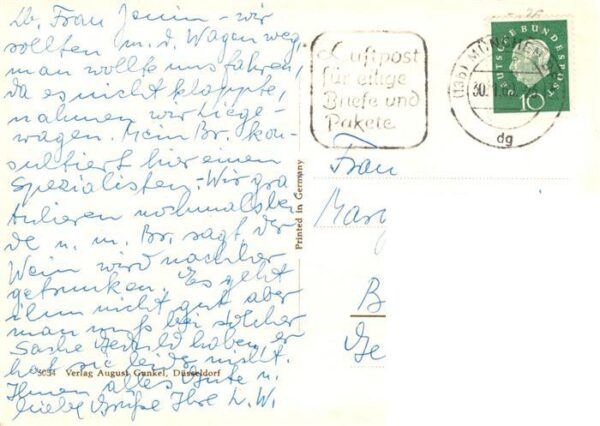 Lb. Frau Jenin – wir
sollten m. d. Wagen weg,
man wollte uns fahren,
da es nicht klappte,
nahmen wir Liege-
wagen. Mein Br. kon-
sultiert hier einen
Spezialisten. – Wir gra
tulieren nochmals bei
de u. m. Br. sagt, der
Wein wird nachher
getrunken. Es geht
ihm nicht gut aber
man muß bei solcher
Sache Geduld haben, er
hat sie leider nicht.
Ihnen alles Gute u.
liebe Grüße Ihre L. W.
5034 Verlag August Gunkel, Düsseldorf
Printed in Germany
Luftpost
für eilige
Briefe und
Pakete
(13b) MÜNCHEN
30.
dg
DEUTSCHE BUNDESPOST
10
Frau
Marg
B
Ge